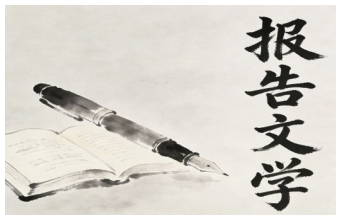 报告文学